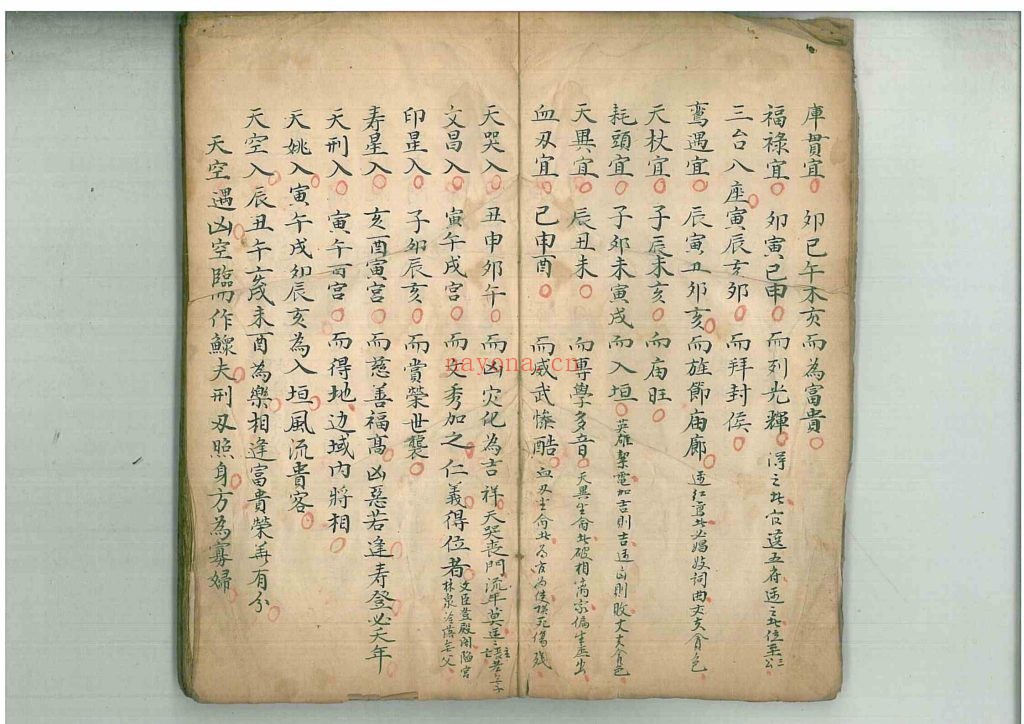 庫貫宜 卯巳午木亥而為富貴
福祿宜 卯寅巳申 而列光輝 得之此官選五府逆之此位至三公
三台八座寅辰亥卯 而拜封侯
鸞遇宜 辰寅丑卯亥而旌節庙廊 逆紅鸞此必娼妓詞曲交友貪色
天杖宜 子辰未亥 而庙旺
耗頭宜 子卯未寅戌而入垣 英雄 加吉則吉逆凶則敗丈夫貪色
天異宜 辰丑未 而專學多音 天異坐命此破相离家偏生
血刃宜 己申酉 而威武慘酷 血刃坐命此 死傷殘
天哭入 丑申卯午 而凶灾化為吉祥天哭喪門流年莫逢
文昌入 寅午戌宮 而文秀加之仁義得位者 文臣登殿閑陷宮林泉冷落
印星入 子卯辰亥 而賞榮世襲
寿星入 亥酉寅宮 而慈善福髙凶惡若逢寿登必夭年
天刑入 寅午酉宮 而得地边域内將相
天姚入寅午戌卯辰亥為入垣風流貴客
天空入辰丑午亥戌未酉為樂相逢富貴榮華有分
天空遇凶空臨而作鰥夫刑刃照身方為寡婦
nayona.cn